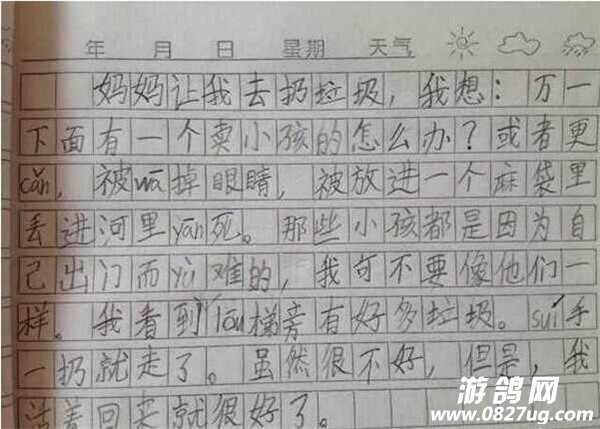 年 月 日 星期 天气
妈妈让我去扔垃圾，我想：万一
下面有一个卖小孩的怎么办？或者更
cǎn，被wā掉眼睛，被放进一个麻袋里
丢进河里yān死。那些小孩都是因为自
己出门而yù难的，我可不要像他们一
样。我看到lóu梯旁有好多垃圾。suí手
一扔就走了。虽然很不好，但是，我
活着回来就很好了。
游鸽网
www.0827ug.com